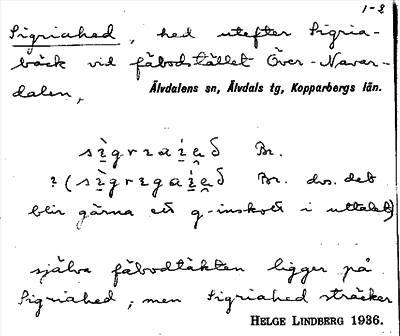 1-2
Sigriahed, hed utefter Sigria-
bäck vid fäbodstället Över-Navar-
dalen,
Älvdalens sn, Älvdals tg, Kopparbergs län.
Br.
Br. dvs. det
blir gärna ett g-inskott i uttalet)
själva fäbodtäkten ligger på
Sigriahed, men Sigriahed sträcker
HELGE LINDBERG 1936.